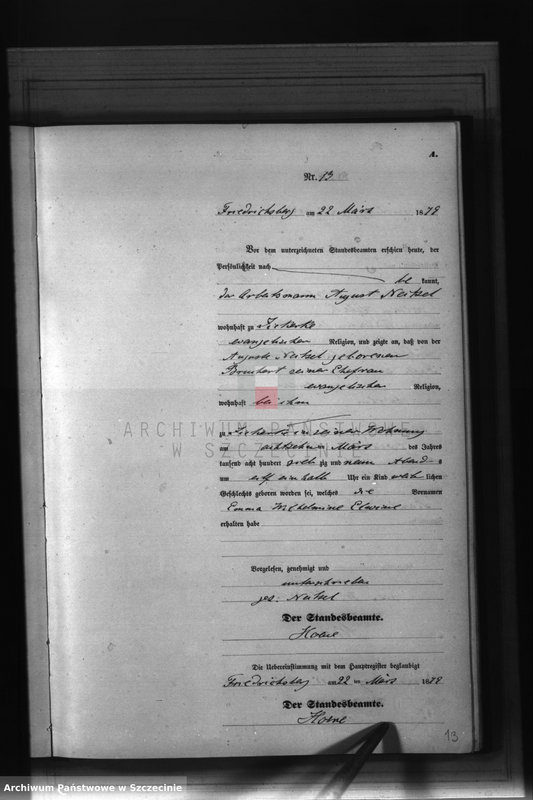 A.
Nr. 13
Friedrichsberg am 22 März 1879
Vor dem unterzeichneten Standesbeamten erschien heute, der
Persönlichkeit nach
be kannt,
der Arbeitsmann August Neitzel
wohnhaft zu
evangelischer Religion, und zeigte an, daß von der
Auguste Neitzel geborenen
seiner Ehefrau
evangelischer Religion,
wohnhaft bei ihm
zu in seiner Wohnung
am achtzehnten März des Jahres
tausend acht hundert zig und neun Abends
um elf einhalb Uhr ein Kind weib lichen
Geschlechts geboren worden sei, welches die Vornamen
Emma Wilhelmine
erhalten habe
Vorgelesen, genehmigt und
unterschrieben
gez. Neitzel
Der Standesbeamte.
Die Uebereinstimmung mit dem Hauptregister beglaubigt
Friedrichsberg am 22 ten März 1879
Der Standesbeamte.
13
ARCHIWUM PAŃSTWOWE
W SZCZECINIE
Archiwum Państwowe w Szczecinie